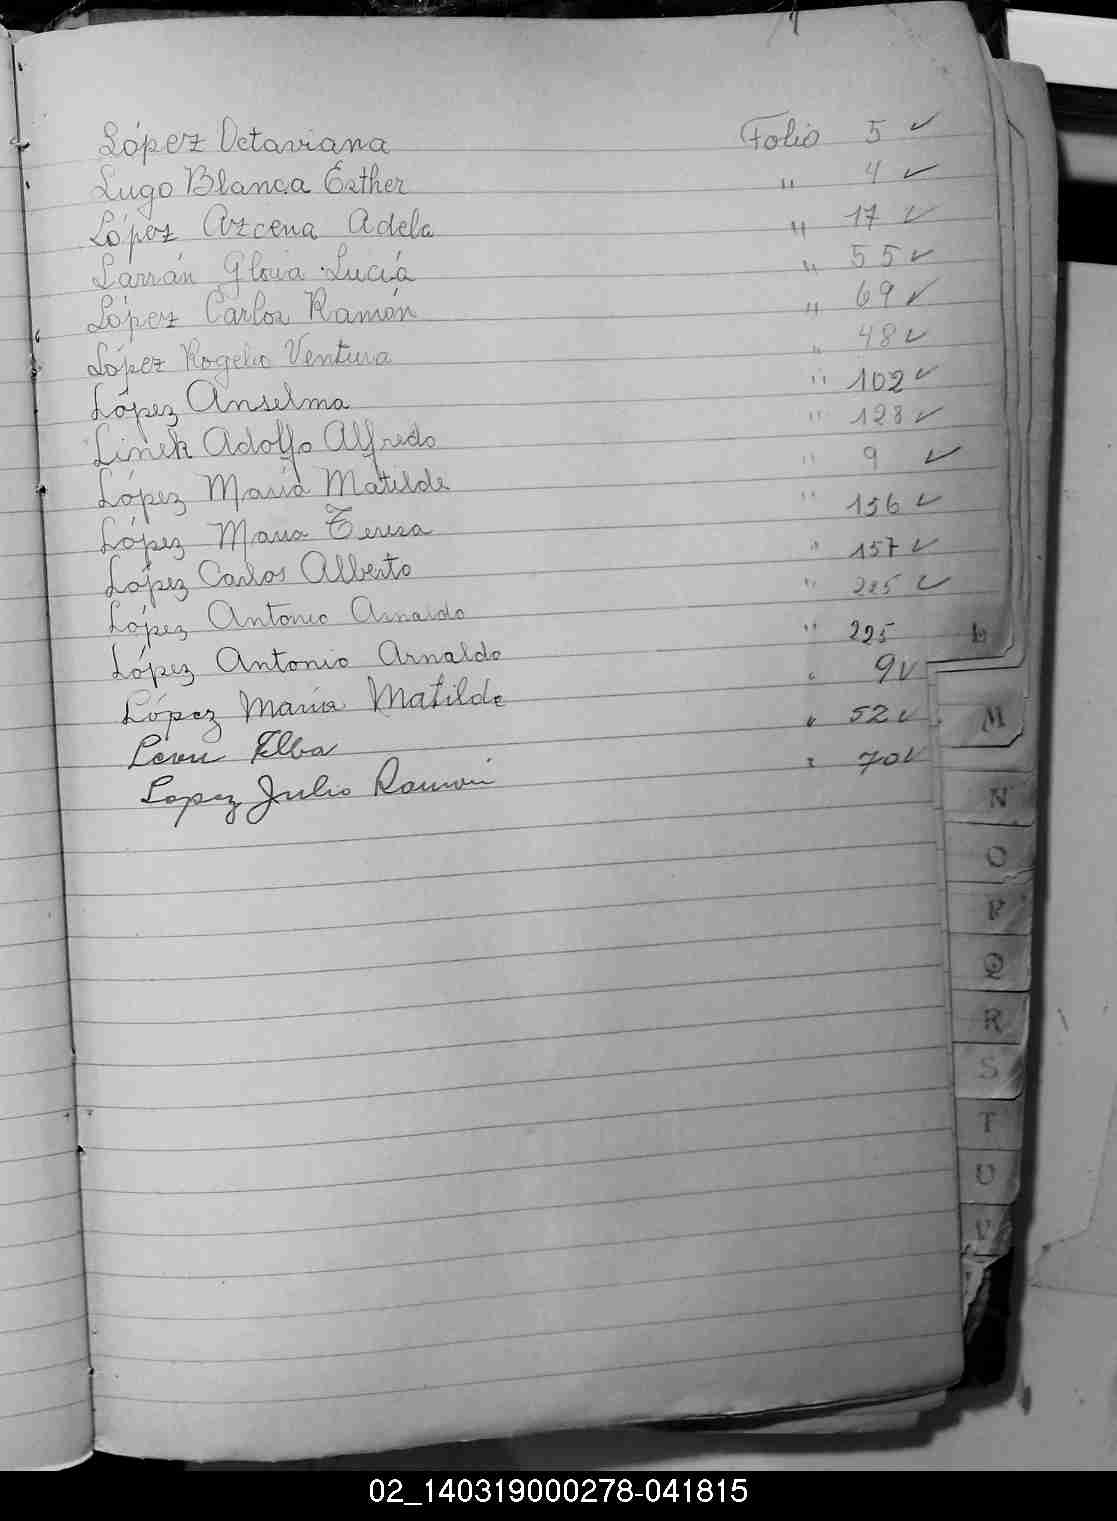 López Octaviana Folio 5 ✓
Lugo Blanca Esther " 4 ✓
López Azcena Adela " 17 ✓
Larrán Gloria Lucía " 55 ✓
López Carlos Ramón " 69 ✓
López Rogelio Ventura " 48 ✓
López Anselma " 102 ✓
Linek Adolfo Alfredo " 128 ✓
López María Matilde " 9 ✓
López Maria Teresa " 156 ✓
López Carlos Alberto " 157 ✓
López Antonio Arnaldo " 225 ✓
López Antonio Arnaldo " 225
López María Matilde " 9 ✓
Elba " 52 ✓
Lopez Julio Ramón " 70 ✓
L
M
N
O
P
Q
R
S
T
U
V
02_140319000278-041815